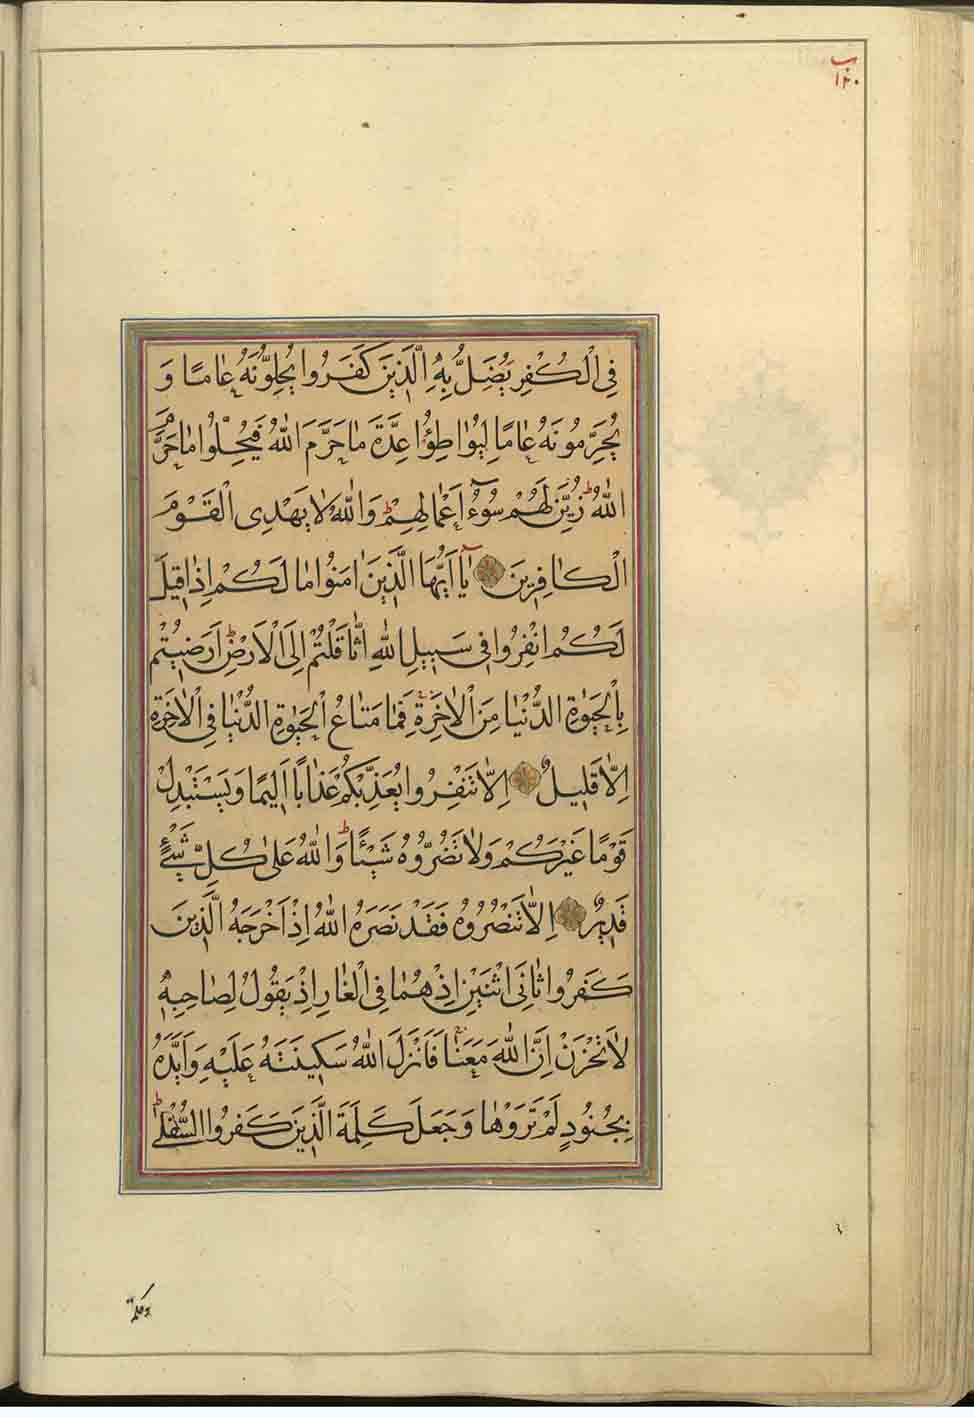 ب
۱۲۰
فِی الْكُفْرِ يُضَلُّ بِهِ الَّذِينَ كَفَرُوا يُحِلُّونَهُ عَامًا وَ
يُحَرِّمُونَهُ عَامًا لِيُوَاطِؤُا عِدَّةَ مَا حَرَّمَ اللّٰهُ فَيُحِلُّوا مَا حَرَّمَ
اللّٰهُ ط زُيِّنَ لَهُمْ سُوۤءُ اَعْمَالِهِمْ ط وَاللّٰهُ لَا يَهْدِی الْقَوْمَ
الْكَافِرِينَ يَاۤ اَيُّهَا الَّذِينَ اٰمَنُوا مَا لَكُمْ اِذَا قِيلَ
لَكُمُ انْفِرُوا فِی سَبِيلِ اللّٰهِ اثَّاقَلْتُمْ اِلَی الْاَرْضِ ط اَرَضِيتُمْ
بِالْحَيٰوةِ الدُّنْيَا مِنَ الْاٰخِرَةِ ج فَمَا مَتَاعُ الْحَيٰوةِ الدُّنْيَا فِی الْاٰخِرَةِ
اِلَّا قَلِيلٌ اِلَّا تَنْفِرُوا يُعَذِّبْكُمْ عَذَابًا اَلِيمًا وَيَسْتَبْدِلْ
قَوْمًا غَيْرَكُمْ وَلَا تَضُرُّوهُ شَيْئًا ط وَاللّٰهُ عَلٰی كُلِّ شَیْءٍ
قَدِيرٌ اِلَّا تَنْصُرُوهُ فَقَدْ نَصَرَهُ اللّٰهُ اِذْ اَخْرَجَهُ الَّذِينَ
كَفَرُوا ثَانِیَ اثْنَيْنِ اِذْ هُمَا فِی الْغَارِ اِذْ يَقُولُ لِصَاحِبِهِ
لَا تَحْزَنْ اِنَّ اللّٰهَ مَعَنَا ج فَاَنْزَلَ اللّٰهُ سَكِينَتَهُ عَلَيْهِ وَاَيَّدَهُ
بِجُنُودٍ لَمْ تَرَوْهَا وَجَعَلَ كَلِمَةَ الَّذِينَ كَفَرُوا السُّفْلٰی ط
وكلمة